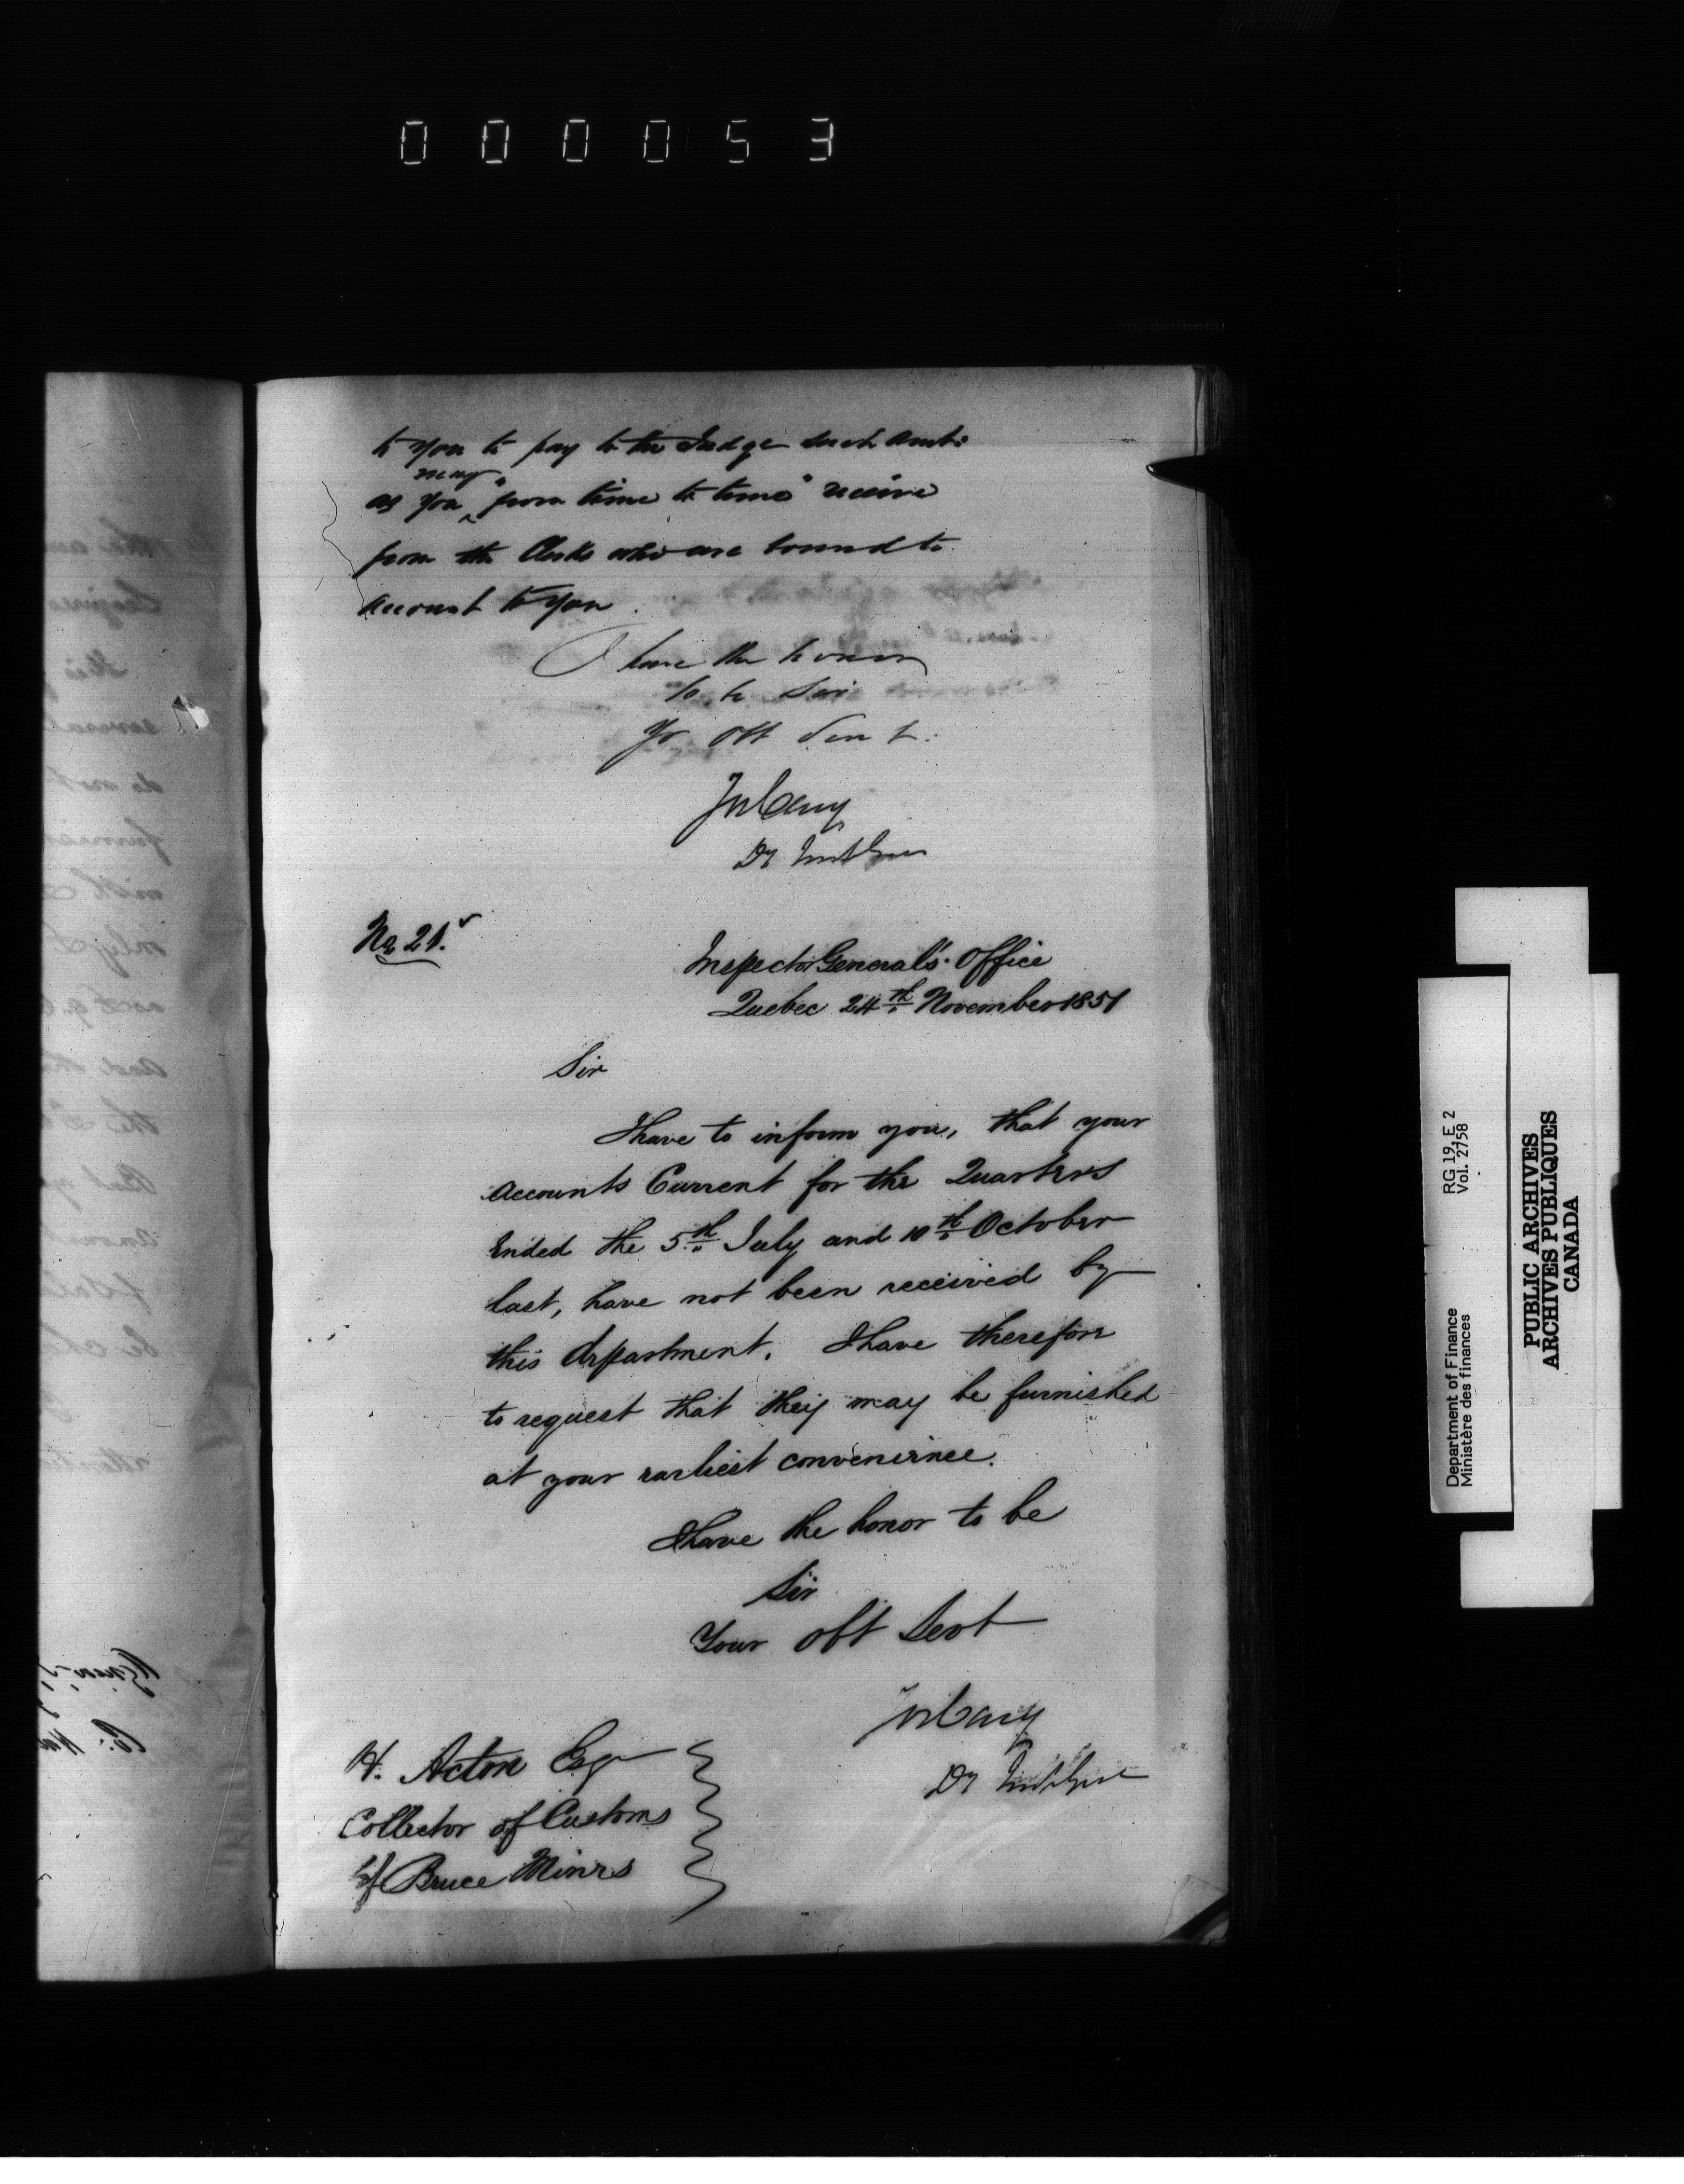 000053
to you to pay to the Judge such amts:
may
as you "from time to time" receive
from the Clerks who are bound to
account to you.
I have the honor
to be Sir
Yr Obt Servt:
Jos Cary
Dy Insp Genl
No 21.
Inspector General's Office
Quebec 24th November 1851
Sir
I have to inform you, that your
Accounts Current for the Quarters
Ended the 5th July and 10th October
last, have not been received by
this department. I have therefore
to request that they may be furnished
at your earliest convenience.
I have the honor to be
Sir
Your Obt Servt
Jos Cary
Dy Insp Genl
H. Acton Esqr
Collector of Customs
Bruce Mines
RG 19, E 2
Vol. 2758
Department of Finance
Ministère des finances
PUBLIC ARCHIVES
ARCHIVES PUBLIQUES
CANADA